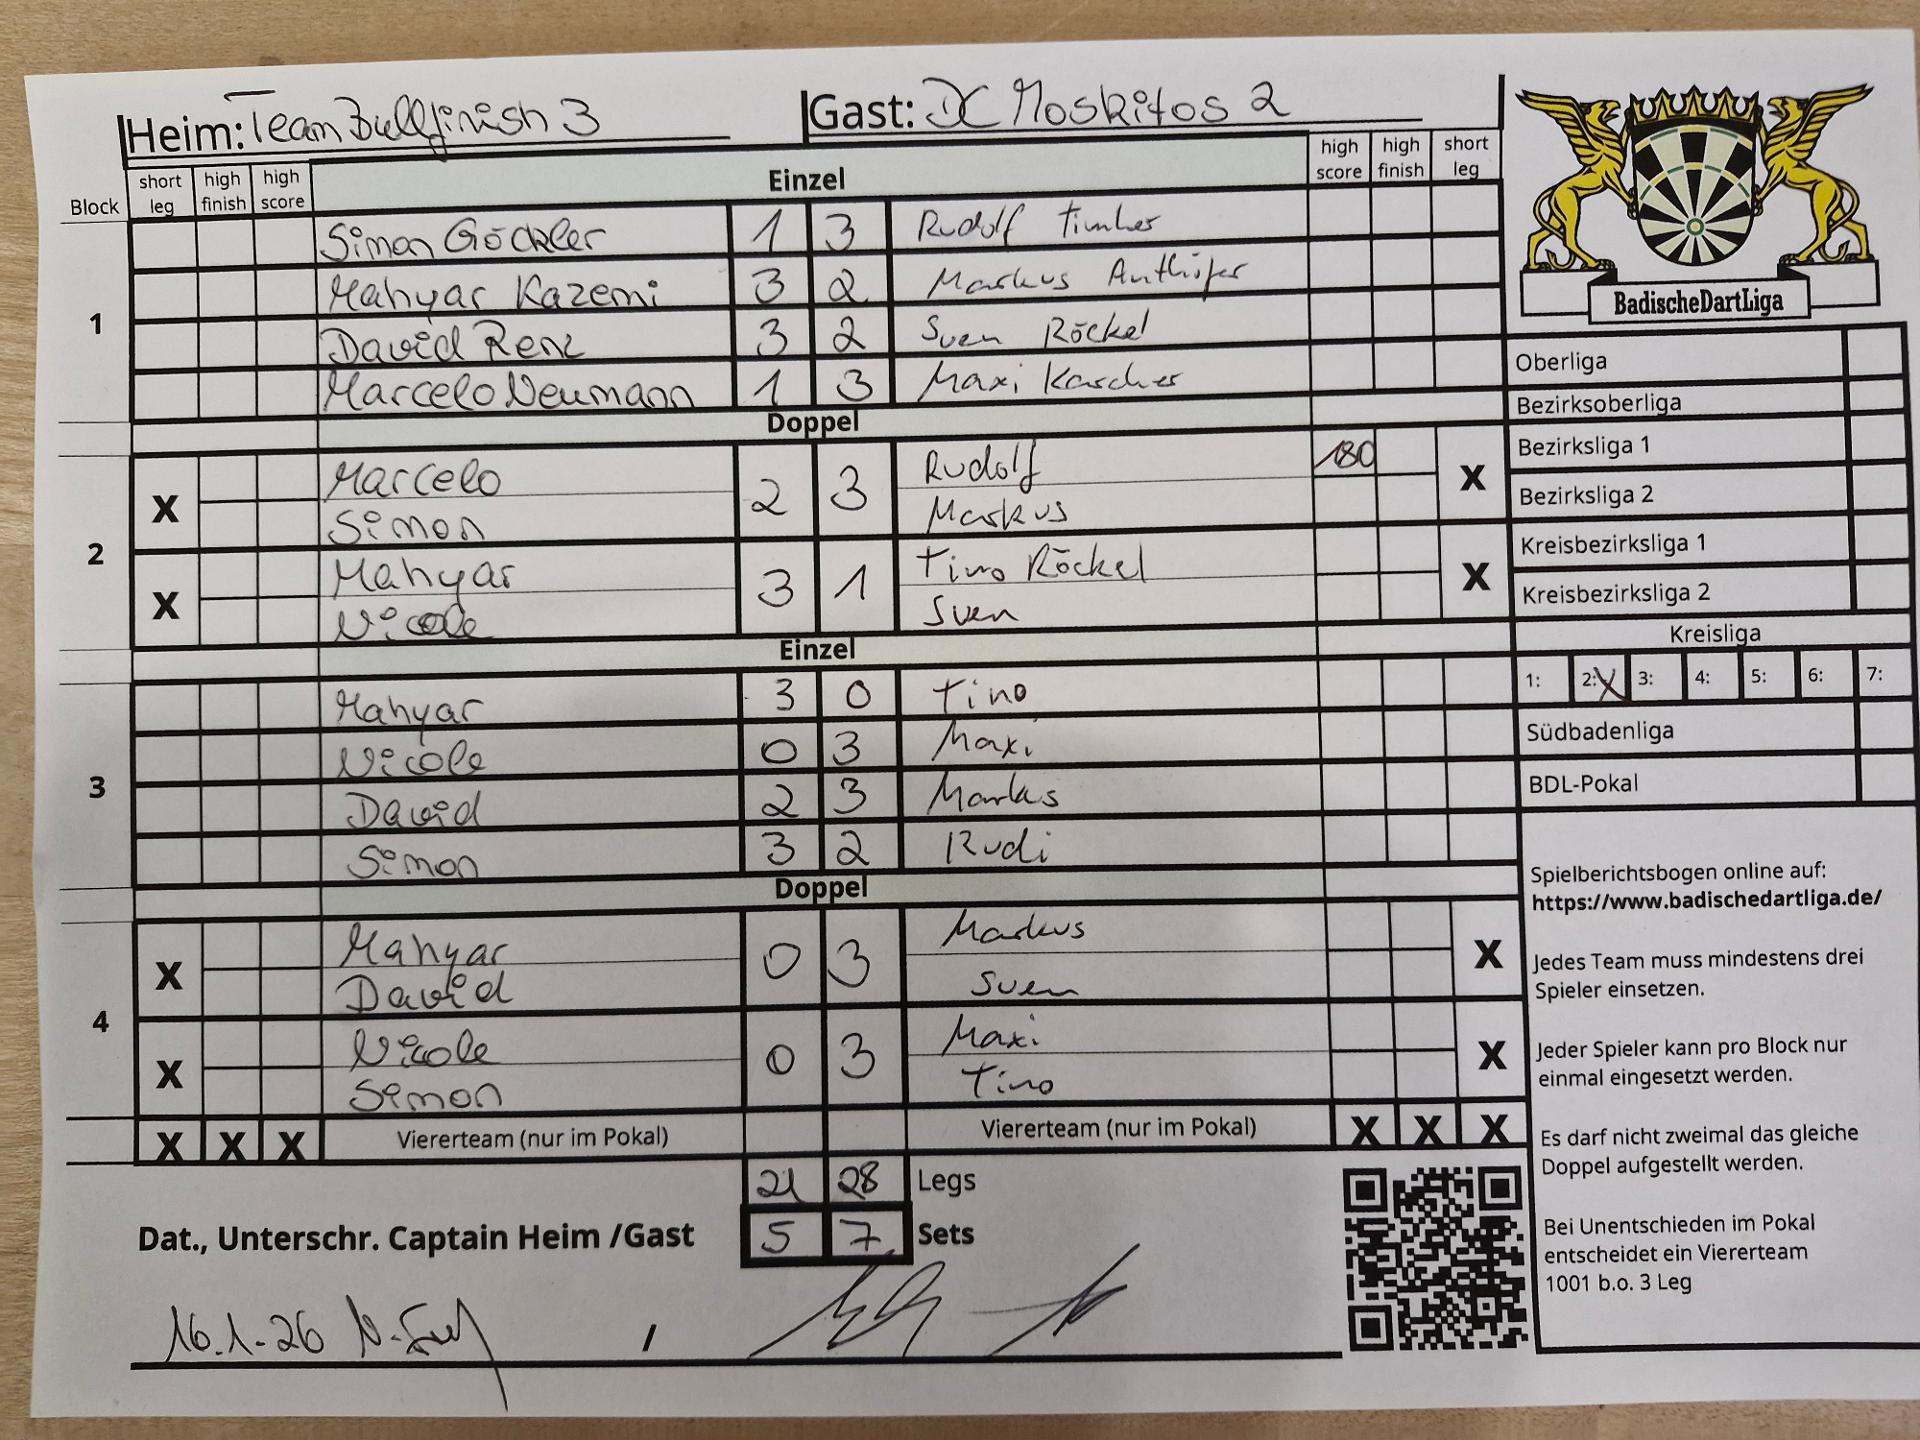 Heim: Team Bullfinish 3 Gast: DC Moskitos 2
Block short leg high finish high score Einzel high score high finish short leg
1
Simon Göckler 1 3 Rudolf
Mahyar Kazemi 3 2 Markus
David Renz 3 2 Sven Röckel
Marcelo Neumann 1 3 Maxi Karcher
Doppel
2
X Marcelo 2 3 Rudolf 180 X
Simon Markus
X Mahyar 3 1 Tino Röckel X
Nicole Sven
Einzel
3
Mahyar 3 0 Tino
Nicole 0 3 Maxi
David 2 3 Markus
Simon 3 2 Rudi
Doppel
4
X Mahyar 0 3 Markus X
David Sven
X Nicole 0 3 Maxi X
Simon Tino
X X X Viererteam (nur im Pokal) Viererteam (nur im Pokal) X X X
21 28 Legs
Dat., Unterschr. Captain Heim /Gast 5 7 Sets
16.1.26 /
BadischeDartLiga
Oberliga
Bezirksoberliga
Bezirksliga 1
Bezirksliga 2
Kreisbezirksliga 1
Kreisbezirksliga 2
Kreisliga
1: 2: X 3: 4: 5: 6: 7:
Südbadenliga
BDL-Pokal
Spielberichtsbogen online auf:
https://www.badischedartliga.de/
Jedes Team muss mindestens drei
Spieler einsetzen.
Jeder Spieler kann pro Block nur
einmal eingesetzt werden.
Es darf nicht zweimal das gleiche
Doppel aufgestellt werden.
Bei Unentschieden im Pokal
entscheidet ein Viererteam
1001 b.o. 3 Leg